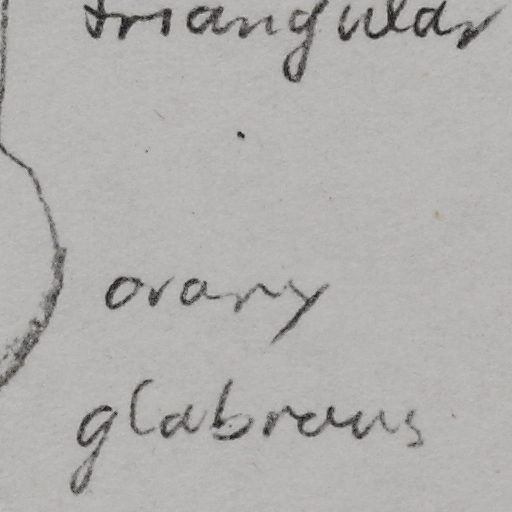 triangular
ovary
glabrous